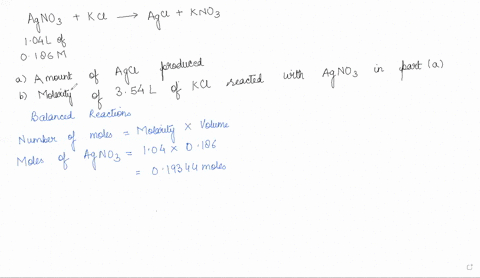 AgNO3 + KCl ⟶ AgCl + KNO3
1.04 L of
0.186 M
a) Amount of AgCl produced
b) Molarity of 3.54 L of KCl reacted with AgNO3 in part (a)
Balanced Reactions
Number of moles = Molarity × Volume
Moles of AgNO3 = 1.04 × 0.186
= 0.19344 moles